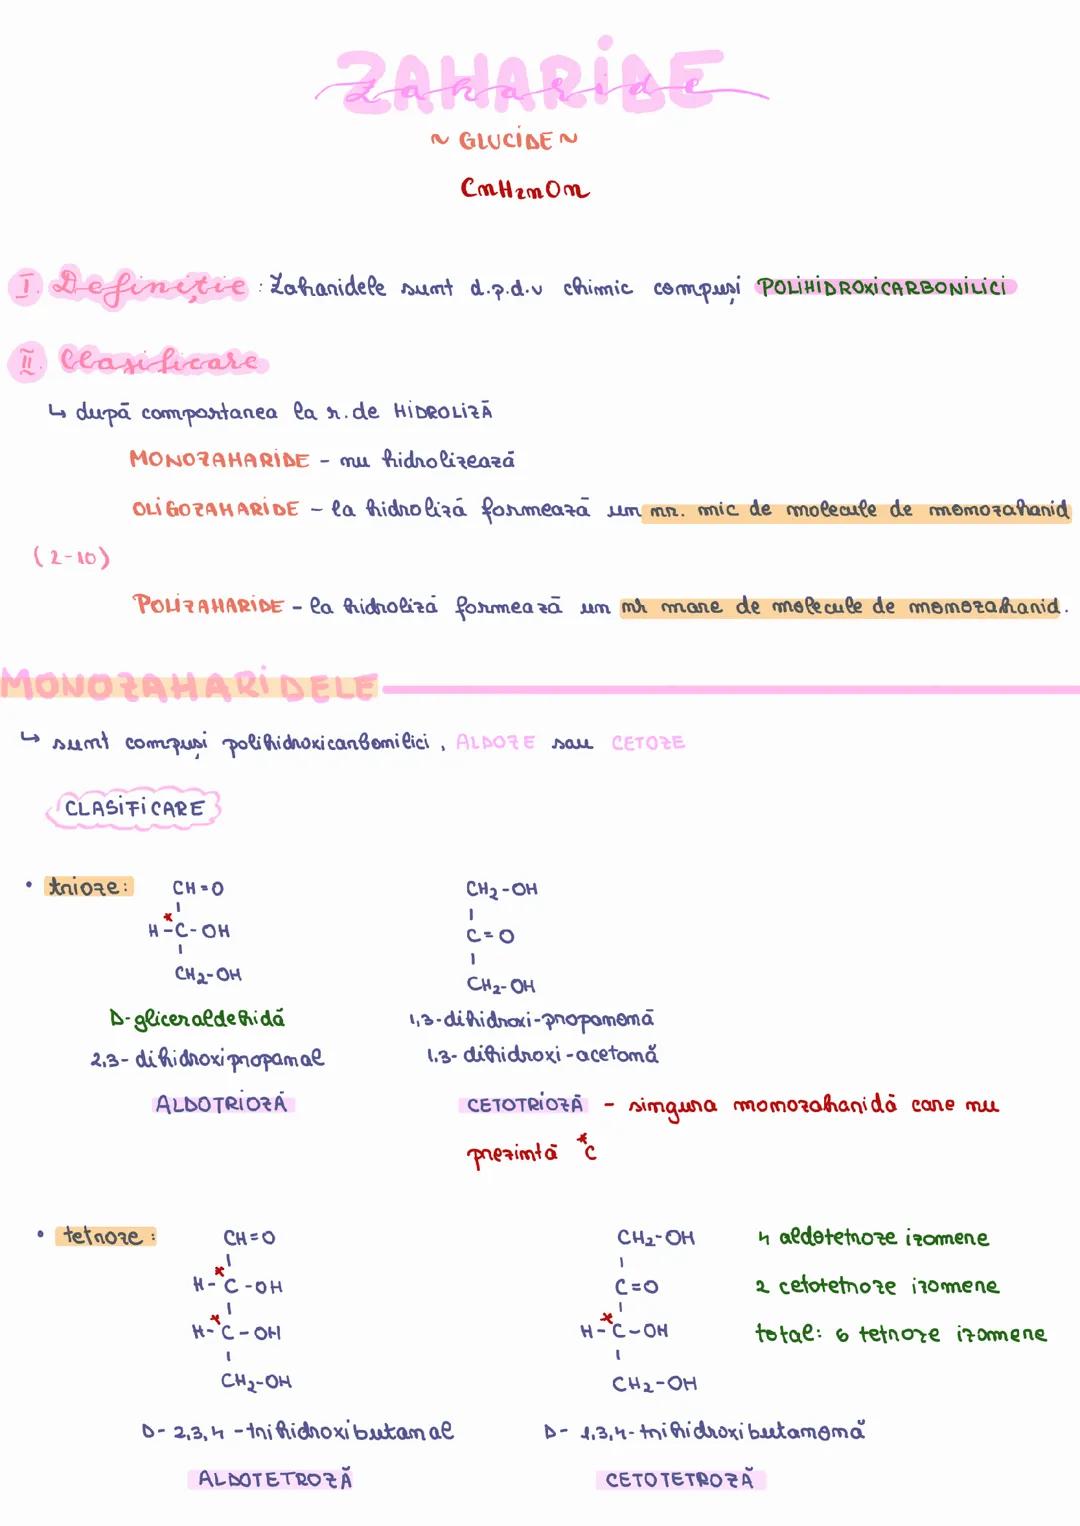 ZAHARIDE
zaharide
~ GLUCIDE ~
CnH2nOn
I. Definiție : Zaharidele sunt d.p.d.v chimic compuși POLIHIDROXICARBONILICI
II. Clasificare
↳ după comportarea la r. de HIDROLIZĂ
MONOZAHARIDE - nu hidrolizează
OLIGOZAHARIDE - la hidroliză formează un nr. mic de molecule de monozaharid
(2-10)
POLIZAHARIDE - la hidroliză formează un nr mare de molecule de monozaharid.
MONOZAHARIDELE
↳ sunt compuși polihidroxicarbonilici, ALDOZE sau CETOZE
CLASIFICARE
• trioze: CH=O CH2-OH
H-C*-OH C=O
CH2-OH CH2-OH
D-gliceraldehidă 1,3-dihidroxi-propanonă
2,3-dihidroxipropanal 1,3-dihidroxi-acetonă
ALDOTRIOZĂ CETOTRIOZĂ - singura monozaharidă care nu
prezintă *C
• tetroze: CH=O CH2-OH 4 aldotetroze izomene
H-C*-OH C=O 2 cetotetroze izomene
H-C*-OH H-C*-OH total: 6 tetroze izomene
CH2-OH CH2-OH
D-2,3,4-trihidroxibutanal D-1,3,4-trihidroxibutanonă
ALDOTETROZĂ CETOTETROZĂ